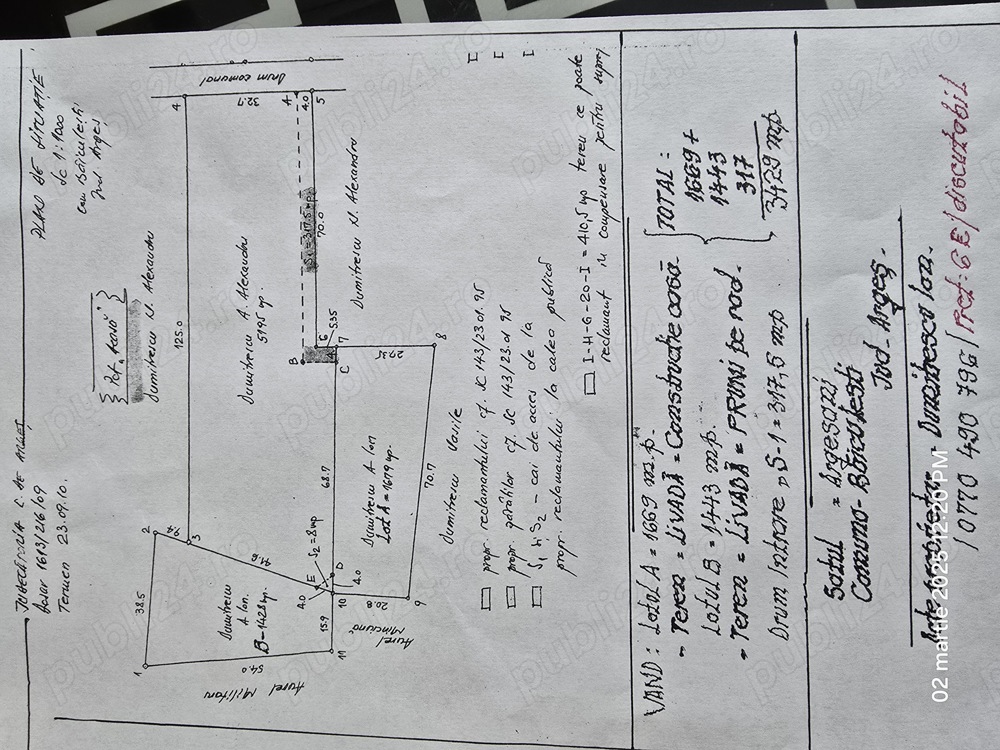 JUDECĂTORIA C. DE ARGEȘ
Dosar 1613/216/09
Termen 23.09.10.
PLAN DE SITUAȚIE
Sc 1:1000
com Băiculești
Jud. Argeș
Pct „Acasă”
Dumitrescu N. Alexandru
1
38.5
2
9.4
3
125.0
4
Aurel Militaru
54.0
Dumitrescu
A Ion.
B-1428mp.
41.6
Dumitrescu A. Alexandru
5195 mp.
32.7
Drum comunal
B
A
4.0
E
S2=8mp
S1=317.5mp
4.0
11
15.9
10
D
68.7
C
4
6
7
5.35
70.0
5
4.0
Aurel
Minciună
20.8
Dumitrescu A Ion
Lot A = 1679 mp.
27.35
Dumitrescu N. Alexandru
9
70.7
8
Dumitrescu Vasile
propr. reclamantului cf. SC 143/23.01.95
propr. pârâților cf. SC 143/23.01 95
S1 și S2 – cai de acces de la
propr. reclamantului la calea publică
I-H-G-20-I = 410,5 mp teren ce poate
reclamant in compensare pentru supraf
VAND: Lotul A = 1669 m.p.
- Teren = LIVADĂ = Constructie casă.
Lotul B = 1443 mp.
- Teren = LIVADĂ = PRUNI pe rod.
Drum Intrare „S-1 = 317,5 mp
TOTAL:
1669+
1443
317
3429 mp
Satul = Argesani
Comuna- Băiculesti
Jud- Argeș.
Acte proprietar - Dumitrescu Ion.
02 martie 2025 12:20 PM
/0770 490 796/ Pret: 6 €/discutabil
publi24.ro